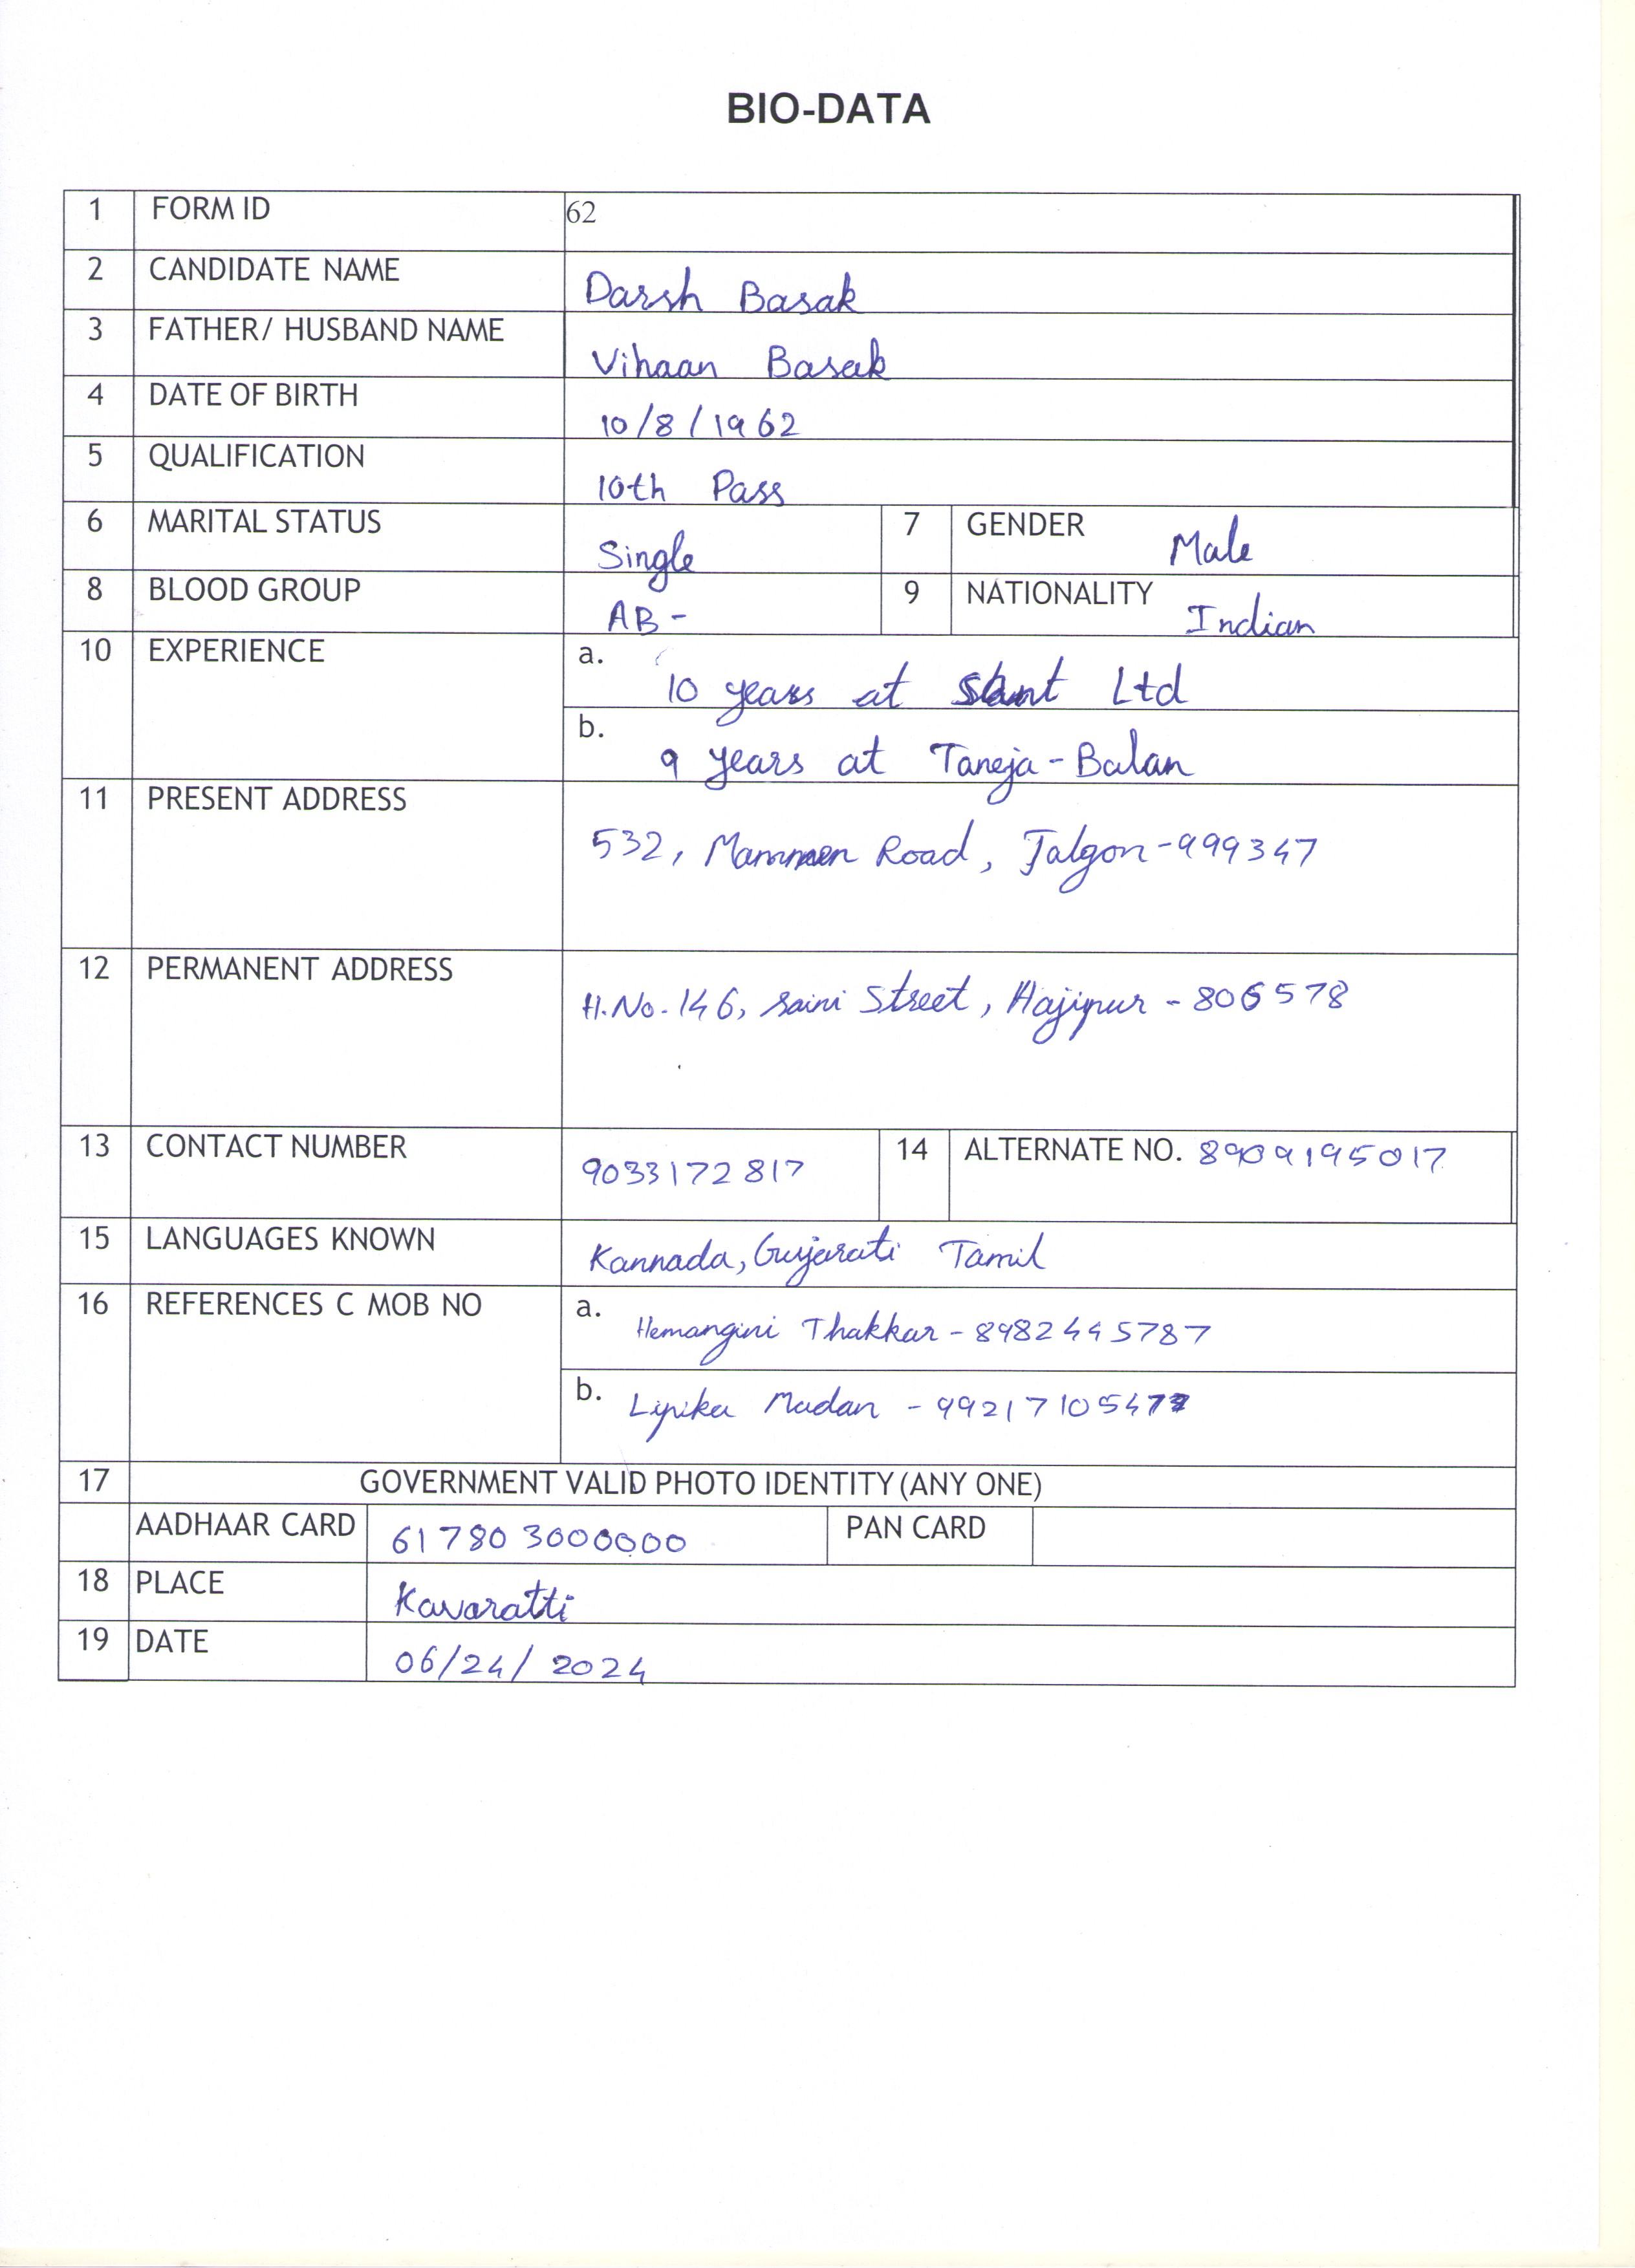 BIO-DATA
1 FORM ID 62
2 CANDIDATE NAME Darsh Basak
3 FATHER/ HUSBAND NAME Vihaan Basak
4 DATE OF BIRTH 10/8/1962
5 QUALIFICATION 10th Pass
6 MARITAL STATUS Single 7 GENDER Male
8 BLOOD GROUP AB- 9 NATIONALITY Indian
10 EXPERIENCE a. 10 years at Ltd
b. 9 years at Taneja-Balan
11 PRESENT ADDRESS 532, Mammen Road, Jalgon-999347
12 PERMANENT ADDRESS H.No.146, Saini Street, Hajipur - 806578
13 CONTACT NUMBER 9033172817 14 ALTERNATE NO. 8909195017
15 LANGUAGES KNOWN Kannada, Gujarati Tamil
16 REFERENCES C MOB NO a. Hemangini Thakkar - 8982445787
b. Lipika Madan -
17 GOVERNMENT VALID PHOTO IDENTITY(ANY ONE)
AADHAAR CARD 617803000000 PAN CARD
18 PLACE Kavaratti
19 DATE 06/24/2024